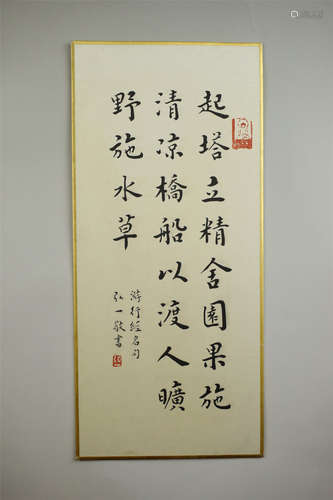 起塔立精舍園果施
清涼橋船以渡人曠
野施水草
游行經名句
弘一敬書